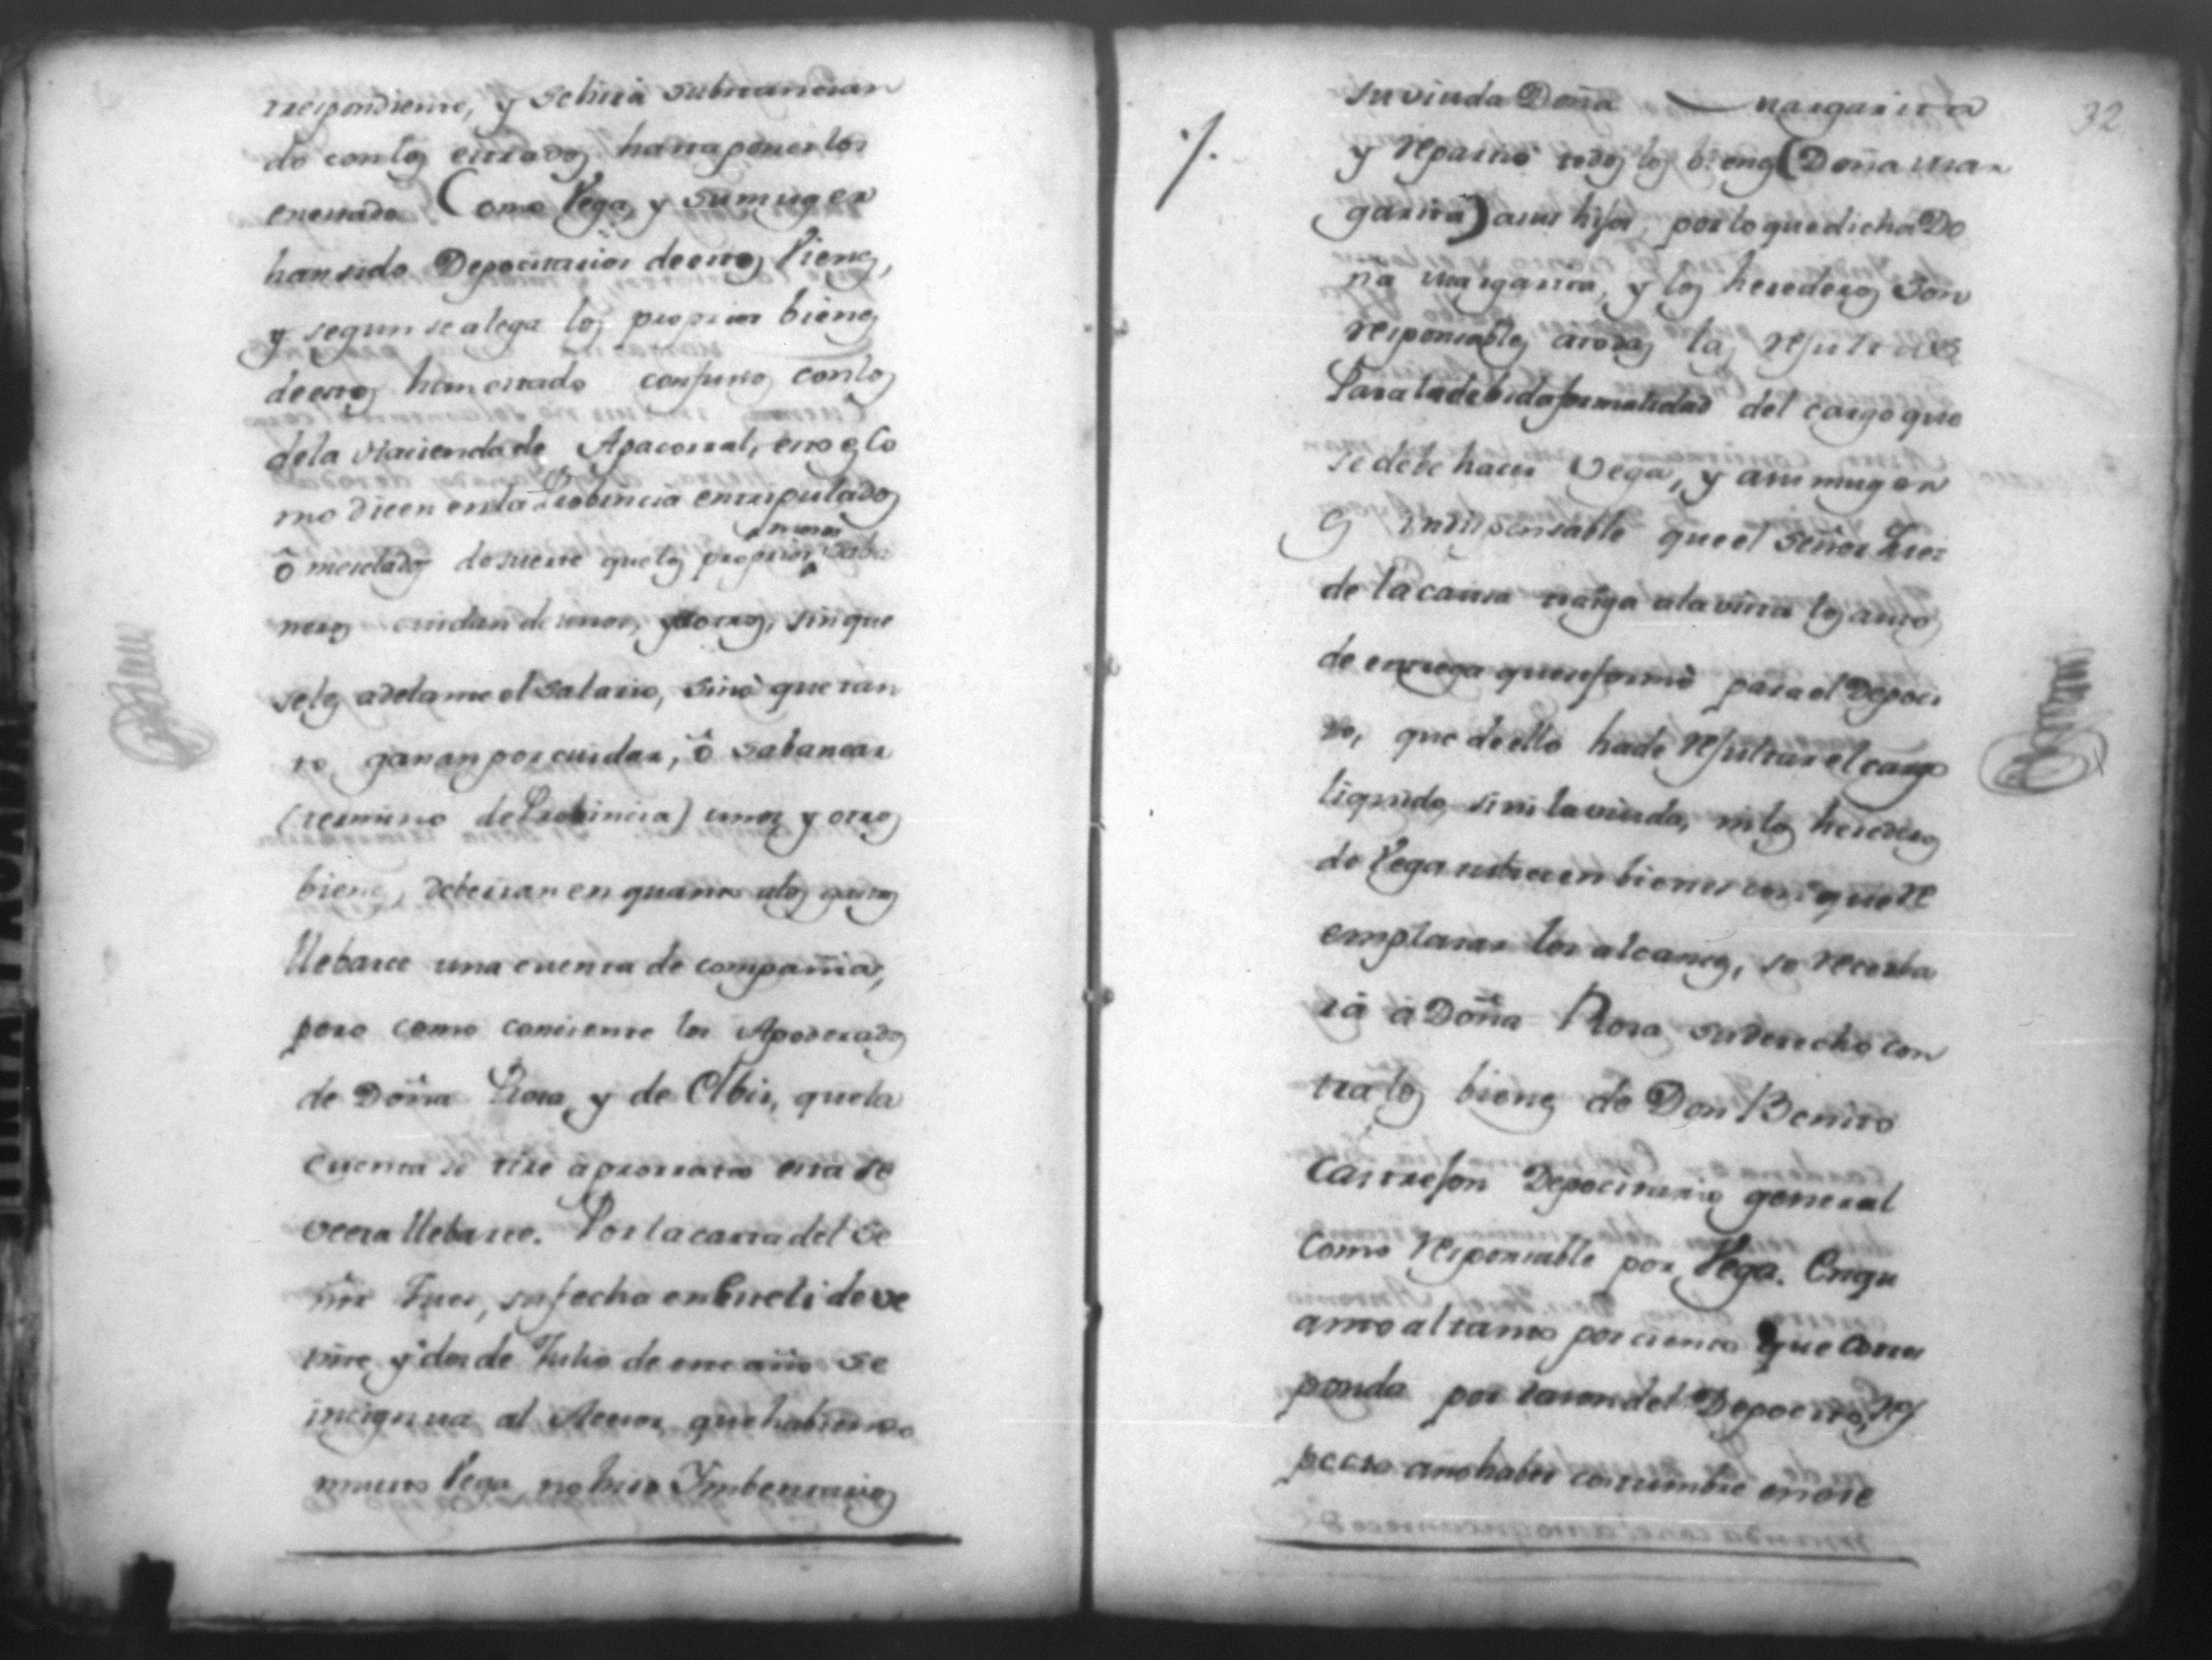 rrespondiente, y se lusià substancian
do con los estados hasta ponerlos
enestado (Como Vega, y su muger
han sido Depocitarios de estos Vienes,
y segun se alega los proprios bienes
de estos han estado confusos con los
de la Hacienda de Apacorral, esto es Co
mo dicen en la Probincia entripulados
ô mesclados de suerte que los proprios saba
mismos
neros cuidan de unos, y otros, sin que
se les adelante el salario, sinò que tan
to ganan por cuidar, ô sabanear
(termino de Probincia) unos y otros
bienes, deberian en quanto a los gastos
llebarse una cuenta de compañia,
pero como conciente los Apoderados
de Doña Rosa, y de Olbis, que la
cuenta se tire aprorrata esta se
veera llebarse. Por la carta del Se
ñor Juez, su fecha en de ve
inte y dos de Julio de este año se
incignua al Acesor, que habiendo
muerto Vega, no hiso Imbentarios
32
su viuda Doña — Margarita
y repartiò todos los bienes (Doña Mar
garita) a sus hijos, por lo que dicha Do
ña Margarita, y los herederos Son
responsables a todas las resultas
Para la debida formalidad del cargo que
se debe hacer Vega, y a su muger
es indispensable que el Señor Juez
de la causa traiga a la vista los autos
de entrega que se formò para el Depoci
to, que de ello ha de resultar el cargo
liquido, si ni la viuda, ni los herederos
de Vega tubiecen bienes con que re
emplasar los alcances, se recerba
rà à Doña Rosa su derecho con
tra los bienes de Don Benito
Castrejon Depocitario general
Como responsable por Vega. Enqu
anto al tanto por ciento que corres
ponda por rason del Depocito, res
pecto a no haber costumbre en ose